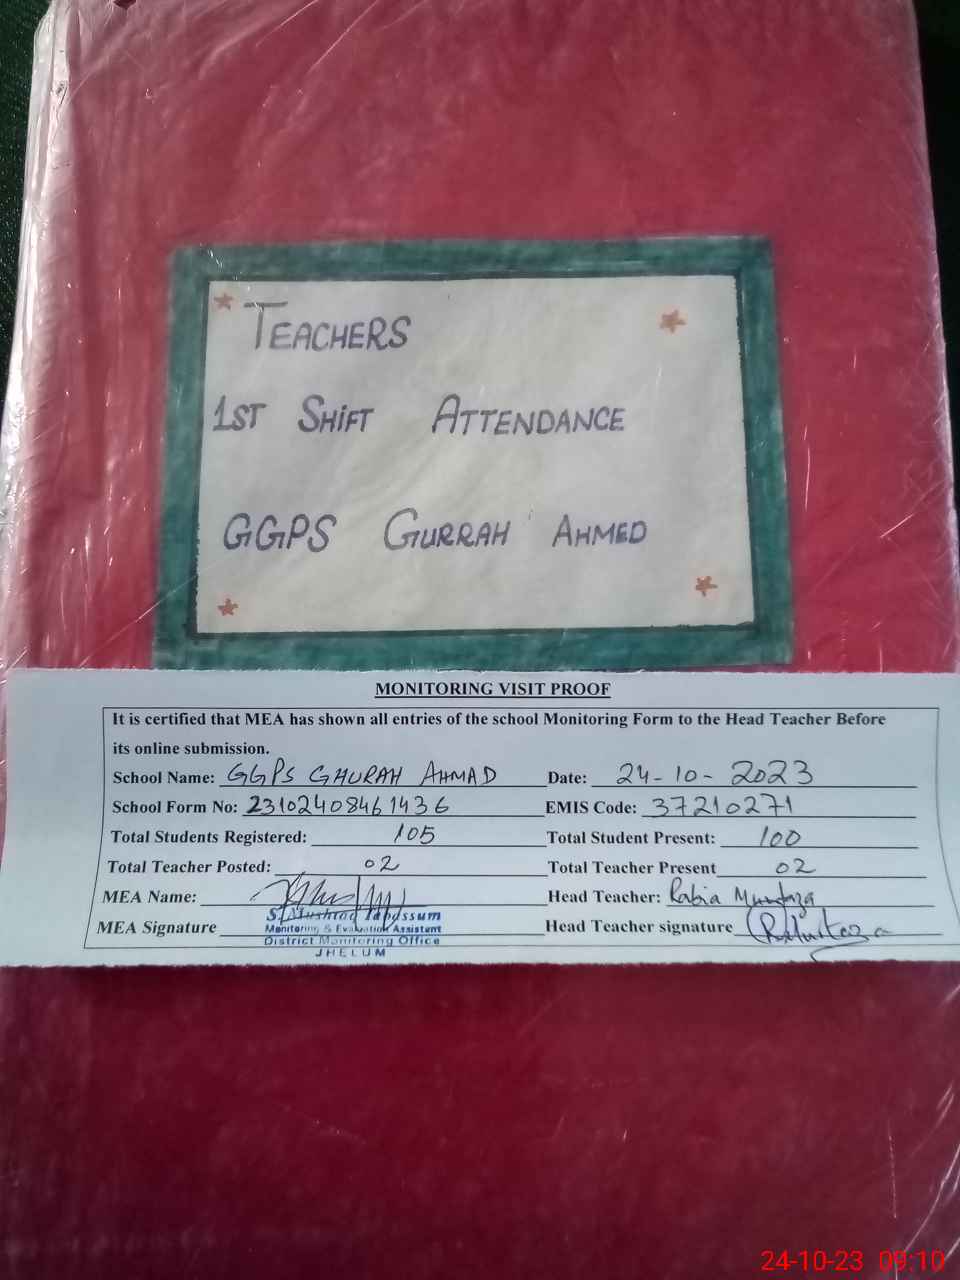 TEACHERS
1ST SHIFT ATTENDANCE
GGPS GURRAH AHMED
MONITORING VISIT PROOF
It is certified that MEA has shown all entries of the school Monitoring Form to the Head Teacher Before
its online submission.
School Name: GGPS GHURAH AHMAD Date: 24-10-2023
School Form No: 23102408461436 EMIS Code: 37210271
Total Students Registered: 105 Total Student Present: 100
Total Teacher Posted: 02 Total Teacher Present 02
MEA Name: Head Teacher: Rabia Murtaza
S. Mushtaq Tabassum
MEA Signature Head Teacher signature RMurtaza
Monitoring & Evaluation Assistant
District Monitoring Office
JHELUM
24-10-23 09:10